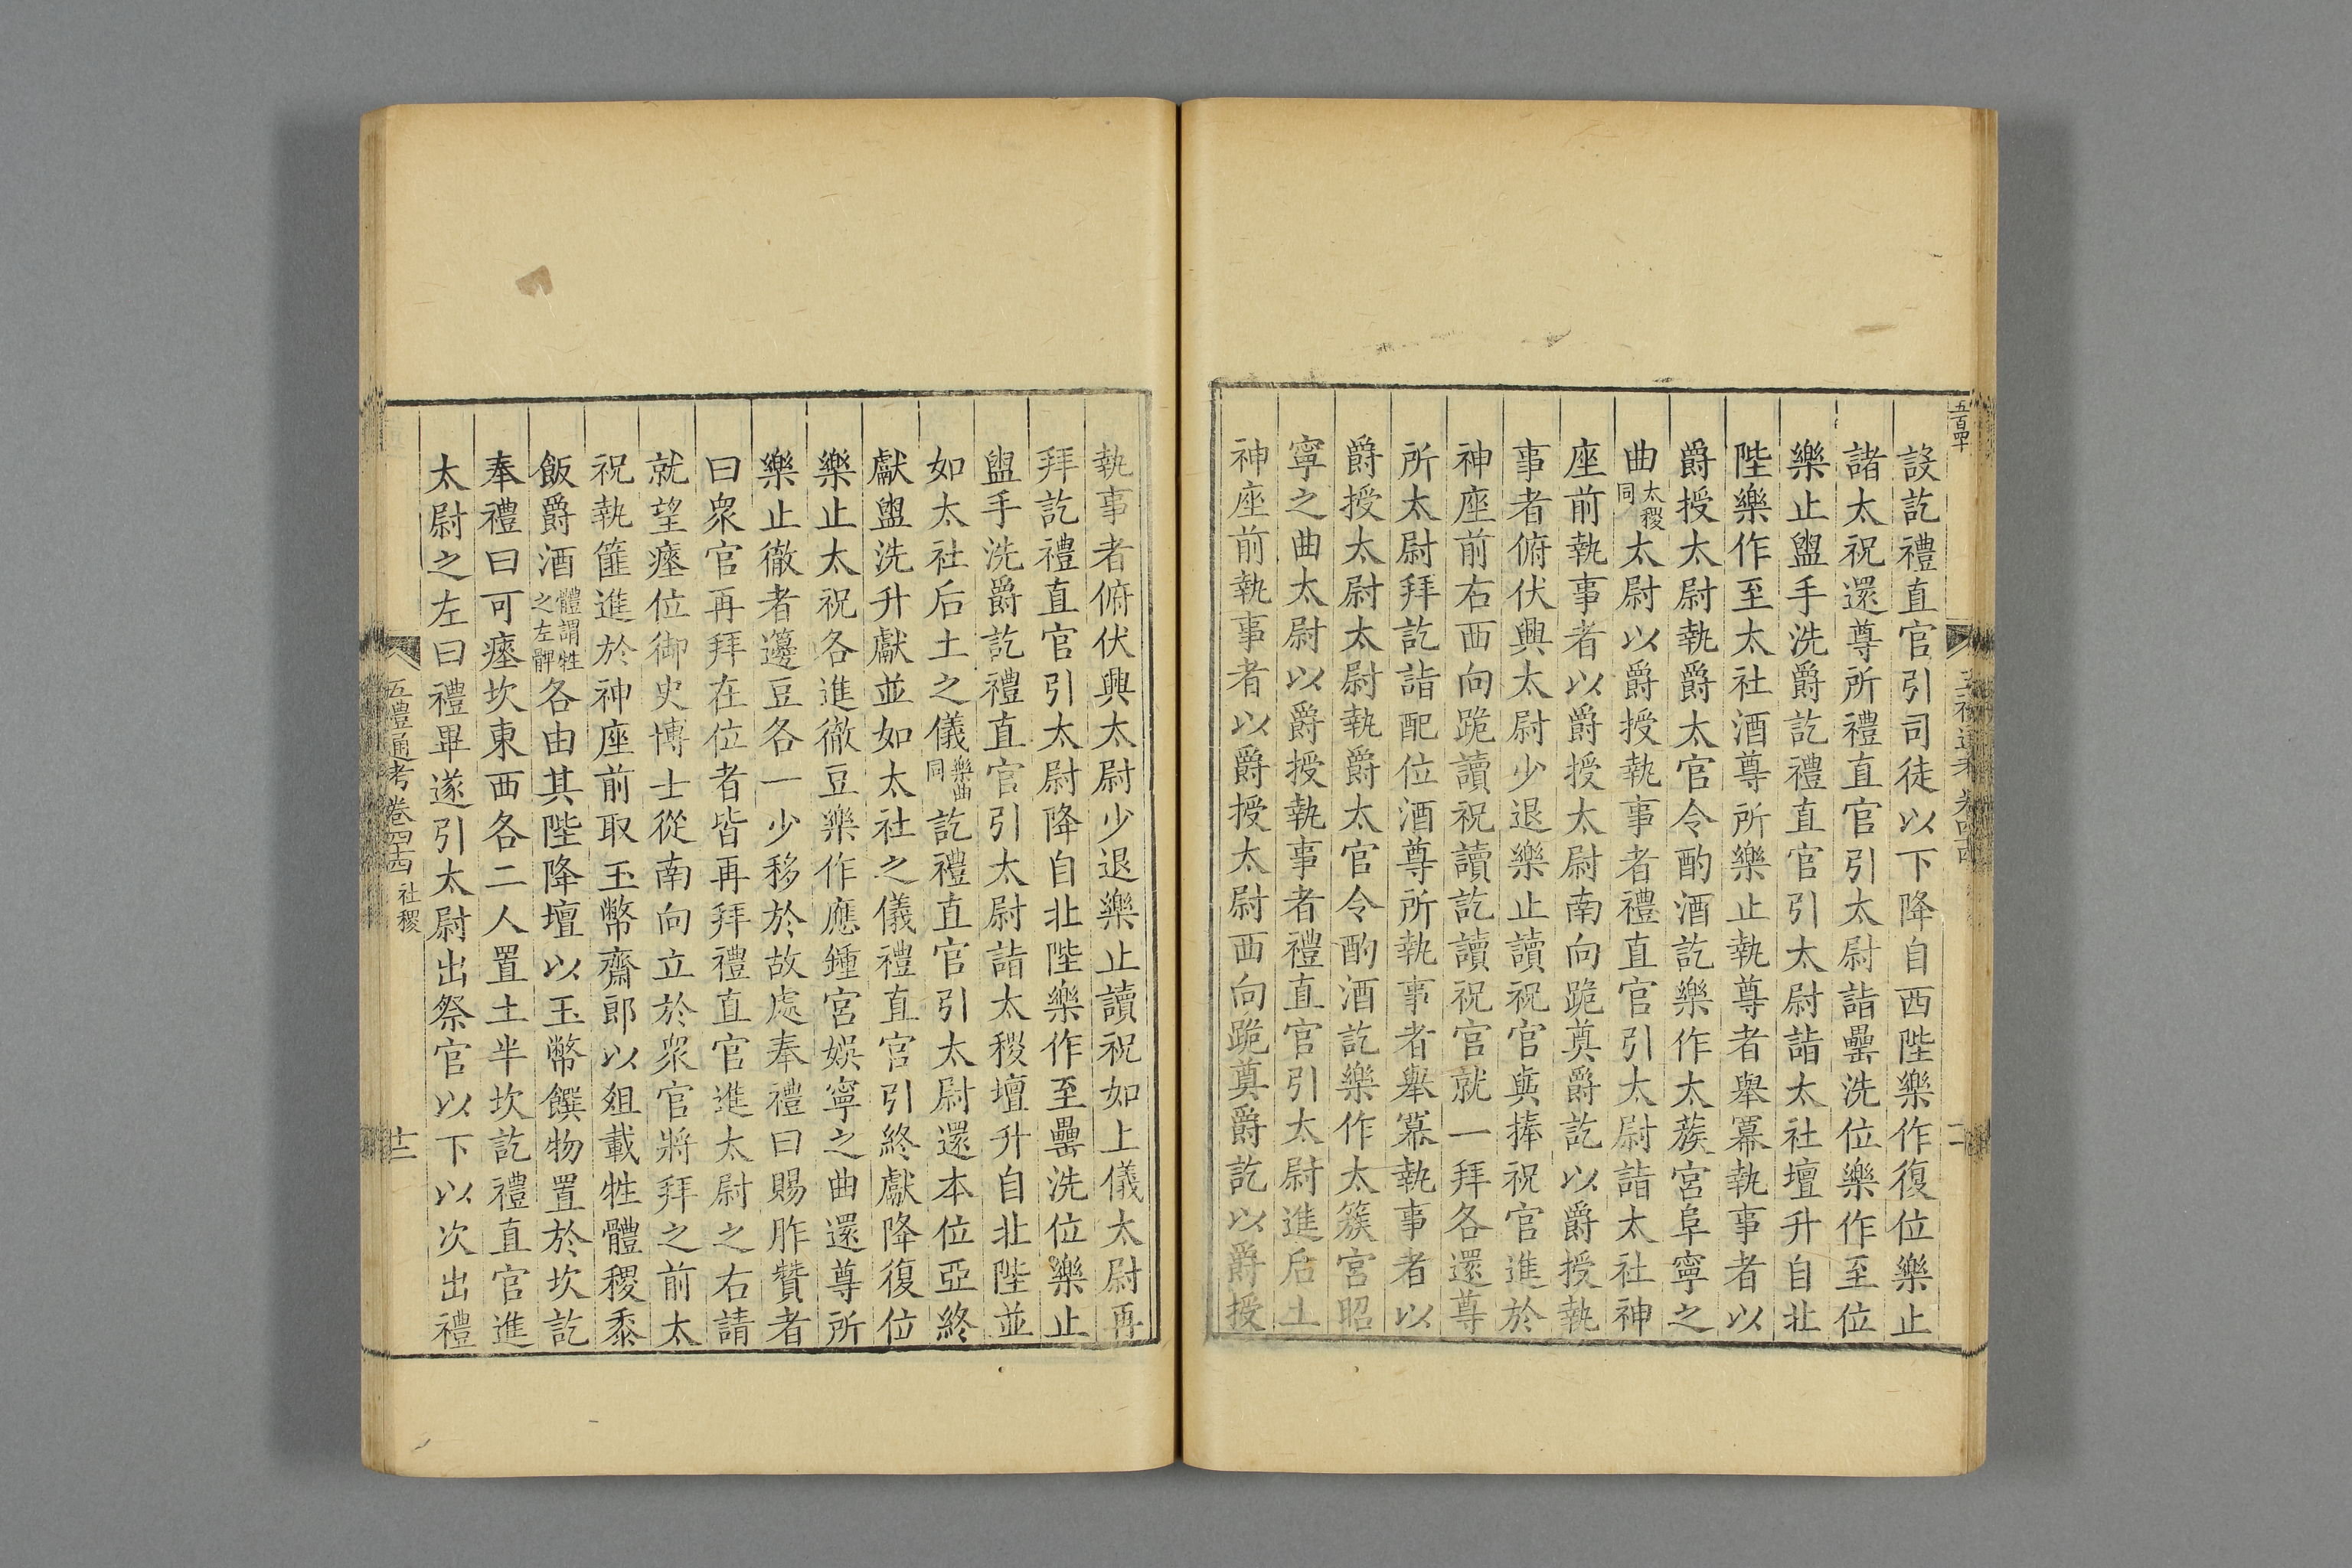 設訖禮直官引司徒以下降自西陛樂作復位樂止
諸太祝還尊所禮直官引太尉詣罍洗位樂作至位
樂止盥手洗爵訖禮直官引太尉詣太社壇升自北
陛樂作至太社酒尊所樂止執尊者舉冪執事者以
爵授太尉執爵太官令酌酒訖樂作太蔟宮阜寧之
曲太稷同太尉以爵授執事者禮直官引太尉詣太社神
座前執事者以爵授太尉南向跪奠爵訖以爵授執
事者俯伏興太尉少退樂止讀祝官與捧祝官進於
神座前右西向跪讀祝讀訖讀祝官就一拜各還尊
所太尉拜訖詣配位酒尊所執事者舉冪執事者以
爵授太尉太尉執爵太官令酌酒訖樂作太簇宮昭
寧之曲太尉以爵授執事者禮直官引太尉進后土
神座前執事者以爵授太尉西向跪奠爵訖以爵授
執事者俯伏興太尉少退樂止讀祝如上儀太尉再
拜訖禮直官引太尉降自北陛樂作至罍洗位樂止
盥手洗爵訖禮直官引太尉詣太稷壇升自北陛並
如太社后土之儀樂曲同訖禮直官引太尉還本位亞終
獻盥洗升獻並如太社之儀禮直官引終獻降復位
樂止太祝各進徹豆樂作應鍾宮娛寧之曲還尊所
樂止徹者籩豆各一少移於故處奉禮曰賜胙贊者
曰衆官再拜在位者皆再拜禮直官進太尉之右請
就望瘞位御史博士從南向立於衆官將拜之前太
祝執篚進於神座前取玉幣齋郎以俎載牲體稷黍
飯爵酒體謂牲之左髀各由其陛降壇以玉幣饌物置於坎訖
奉禮曰可瘞坎東西各二人置土半坎訖禮直官進
太尉之左曰禮畢遂引太尉出祭官以下以次出禮
五禮通考卷四十四 社稷